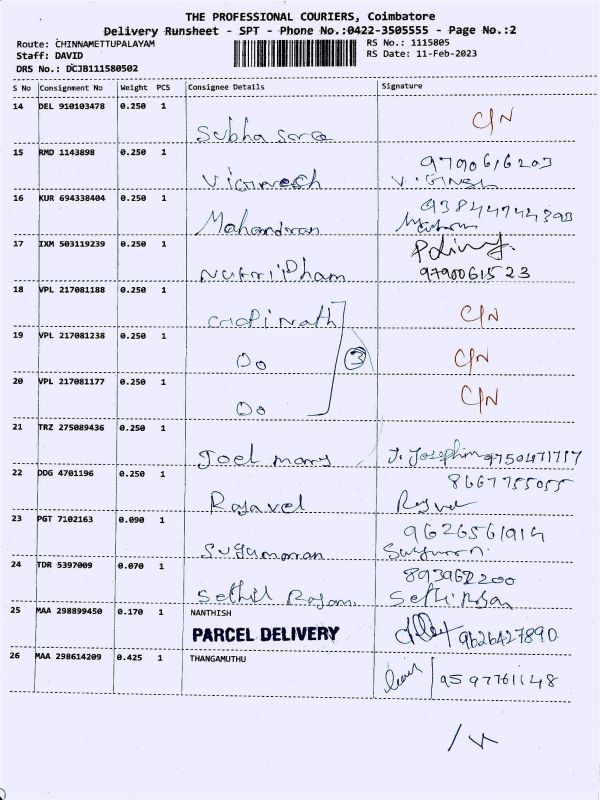 THE PROFESSIONAL COURIERS, Coimbatore
Delivery Runsheet - SPT - Phone No.:0422-3505555 - Page No.:2
Route: CHINNAMETTUPALAYAM
Staff: DAVID
DRS No.: DCJB111580502
RS No.: 1115805
RS Date: 11-Feb-2023
S No Consignment No Weight PCS Consignee Details Signature
14 DEL 910103478 0.250 1
Subha C/N
15 RMD 1143898 0.250 1
Vignesh 9790616203
16 KUR 694338404 0.250 1
Mahendran
17 IXM 503119239 0.250 1
Nutri Pham 9790061523
18 VPL 217081188 0.250 1
Gopinath C/N
19 VPL 217081238 0.250 1
Do 3 C/N
20 VPL 217081177 0.250 1
Do C/N
21 TRZ 275089436 0.250 1
Joel mary J. Josephin 9750471717
22 DDG 4701196 0.250 1
Rajavel 8667755055
23 PGT 7102163 0.090 1
9626561914
24 TDR 5397009 0.070 1
893962200
25 MAA 298899450 0.170 1 NANTHISH
PARCEL DELIVERY 9626427890
26 MAA 298614209 0.425 1 THANGAMUTHU
9597761148